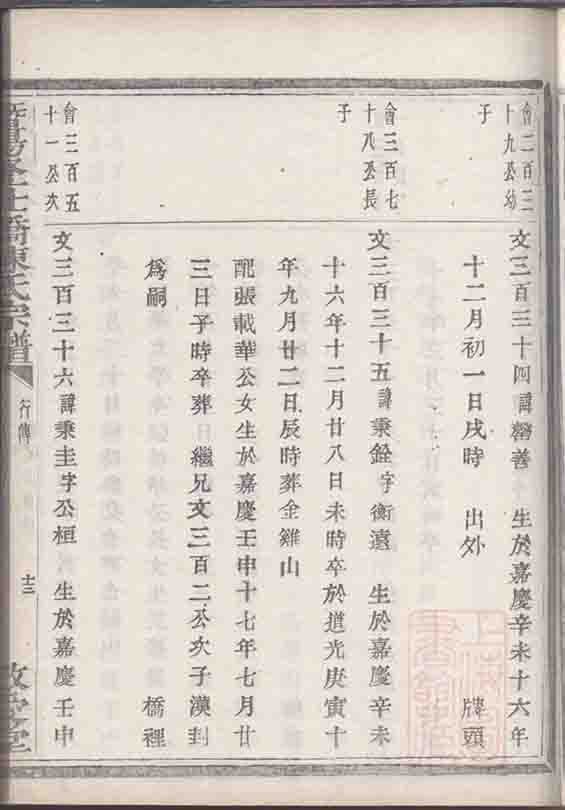 會二百三
十九公幼
子
文三百三十四諱 善 生於嘉慶辛未十六年
十二月初一日戌時 出外 牌頭
會三百七
十八公長
子
文三百三十五諱秉銓字衡遠 生於嘉慶辛未
十六年十二月廿八日未時卒於道光庚寅十
年九月廿二日辰時葬金雞山
配張載華公女生於嘉慶壬申十七年七月廿
三日子時卒葬 繼兄文三百二公次子漢封
為嗣 橋裡
會三百五
十一公次
文三百三十六諱秉圭字公桓 生於嘉慶壬申
橋陳氏宗譜
行傳
十三